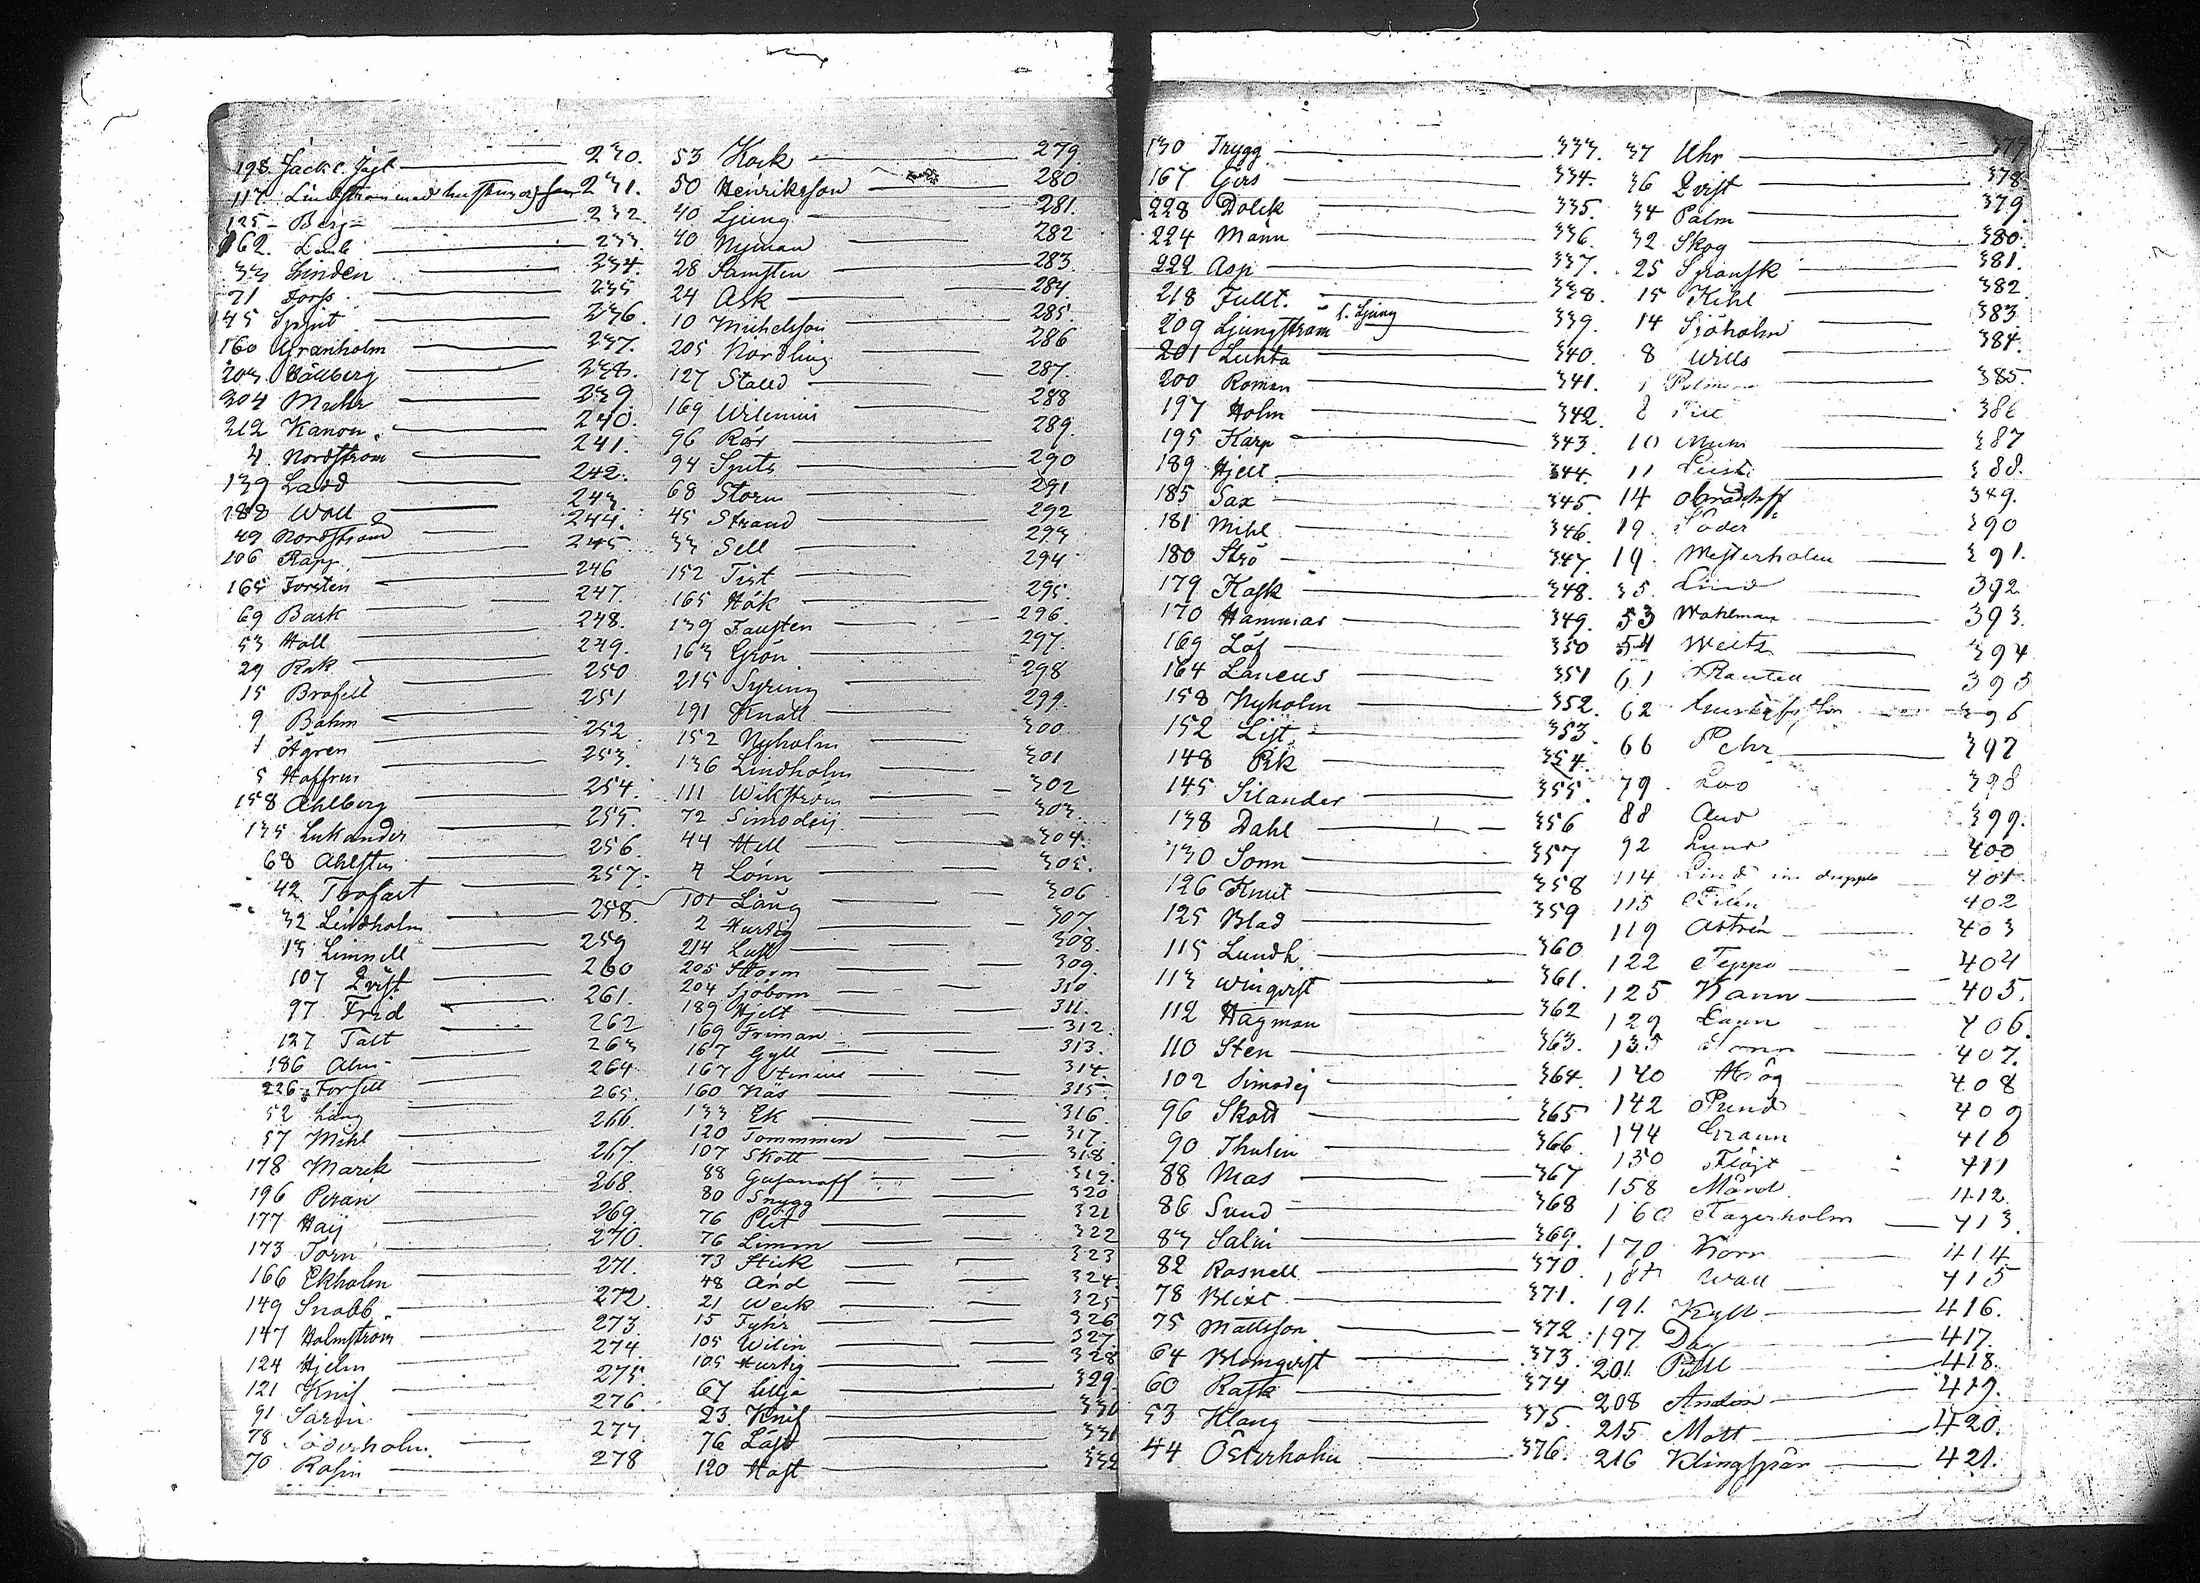 198 Jack c. Jägt 230.
117 Lindström med hustru och son 231.
125 Berg 232.
162. 233.
33 Linden 234.
21 Forss 235
145 Sprit 236.
160 Granholm 237.
203 Vällberg 238.
204 Muhr 239
212 Kanon 240.
4 Nordström 241.
139 Ladd 242.
188 Wall 243.
49 Nordstrand 244.
106 Rapp 245
165 Forsten 246
69 Bark 247
53 Hall 248.
29 Rak 249.
15 Brofelt 250
9 Böhm 251
1 Ågren 252
5 Hoffren 253.
158 Ahlberg 254.
135 Lukander 255.
68 Ahlsten 256
42 Thofart 257.
32 Lindholm 258
13 Limnell 259
107 Qvist 260
97 Frid 261.
127 Tält 262
186 Alm 263
226 Forsell 264
52 Läng 265.
57 Mihl 266.
178 Marck 267.
196 Peran 268.
177 Haij 269.
173 Törn 270.
166 Ekholm 271.
149 Snabb 272.
147 Holmström 273
124 Hjelm 274.
121 Knif 275.
91 Sarin 276.
78 Söderholm 277.
70 Rosin 278
53 Kock 279.
50 Henriksson 280
40 Ljung 281.
40 Nyman 282
28 Samsten 283.
24 Ask 284.
10 Michelsson 285.
205 Nordling 286
127 Staed 287.
169 Wilenius 288
96 Rör 289.
94 Spets 290
68 Storm 291
45 Strand 292
33 Sell 293
152 Tist 294
165 Hök 295.
139 Fausten 296.
163 Grön 297.
215 Syring 298
191 Knall 299.
152 Nyholm 300
136 Lindholm 301
111 Wikström 302
72 Simodeij 303.
44 Hell 304.
4 Lönn 305.
101 Läng 306
2 Hurtig 307.
214 Luft 308.
205 Storm 309.
204 Sjöbom 310
189 Hjelt 311.
169 Friman 312.
167 Gyll 313.
167 Stenius 314.
160 Näs 315
133 Ek 316
120 Tommmen 317.
107 Skott 318.
88 Gusanoff 319.
80 Snygg 320
76 Plit 321
76 Limm 322
73 Stick 323
48 And 324
21 Weck 325
15 Fyhr 326
105 Wilén 327
105 Hurtig 328
67 Lillja 329
23 Knif 330
76 Läst 331
120 Hast 332
130 Trygg 333.
167 Gers 334.
228 Dolck 335.
224 Männ 336.
222 Asp 337.
218 Fullt. 338.
209 Ljungström l. Ljung 339.
201 Luhta 340.
200 Roman 341.
197 Holm 342.
195 Karp 343.
189 Hjelt 344.
185 Sax 345.
181 Mihl 346.
180 Strö 347.
179 Kask 348.
170 Hammar 349.
169 Löf 350
164 Laneus 351
158 Nyholm 352.
152 List 353
148 Rik 354.
145 Silander 355.
138 Dahl 356
130 Sonn 357
126 Knut 358
125 Blad 359
115 Lundh. 360
113 Winqvist 361.
112 Hagman 362
110 Sten 363.
102 Simodej 364.
96 Skott 365
90 Thulin 366
88 Mas 367
86 Sund 368
83 Salin 369.
82 Rosnell 370
78 Blixt 371.
75 Mattsson 372
64 Blomqvist 373.
60 Rask 374
53 Klang 375.
44 Österholm 376.
37 Uhr 377
36 Qvist 378.
34 Palm 379.
32 Skog 380.
25 Spansk 381.
15 Kihl 382
14 Sjöholm 383
8 Wills 384.
385.
8 386
10 387
11 388.
14 389.
19. Söder 390
19. Westerholm 391.
35. Lind 392
53 Wahlman 393.
54 Weits 394
61 Rautell 395
62 Gustafsson 396
66 Pehr 397
79 Loo 398
88 And 399.
92 Lund 400
114 Lind in duppl 401
115 Filén 402
119 Astrén 403
122 Teppo 404
125 Kann 405.
129 Cann 406.
135 Sonn 407.
140 Hög 408
142 Pund 409
144 Grann 410
150 Flöjt 411
158 Mård 412.
160 Fagerholm 413.
170 Korr 414.
187 Wall 415
191. Kyll 416.
197 Dag 417.
201. Pill 418.
208 Anden 419.
215 Mott 420.
216 Klingspår 421.